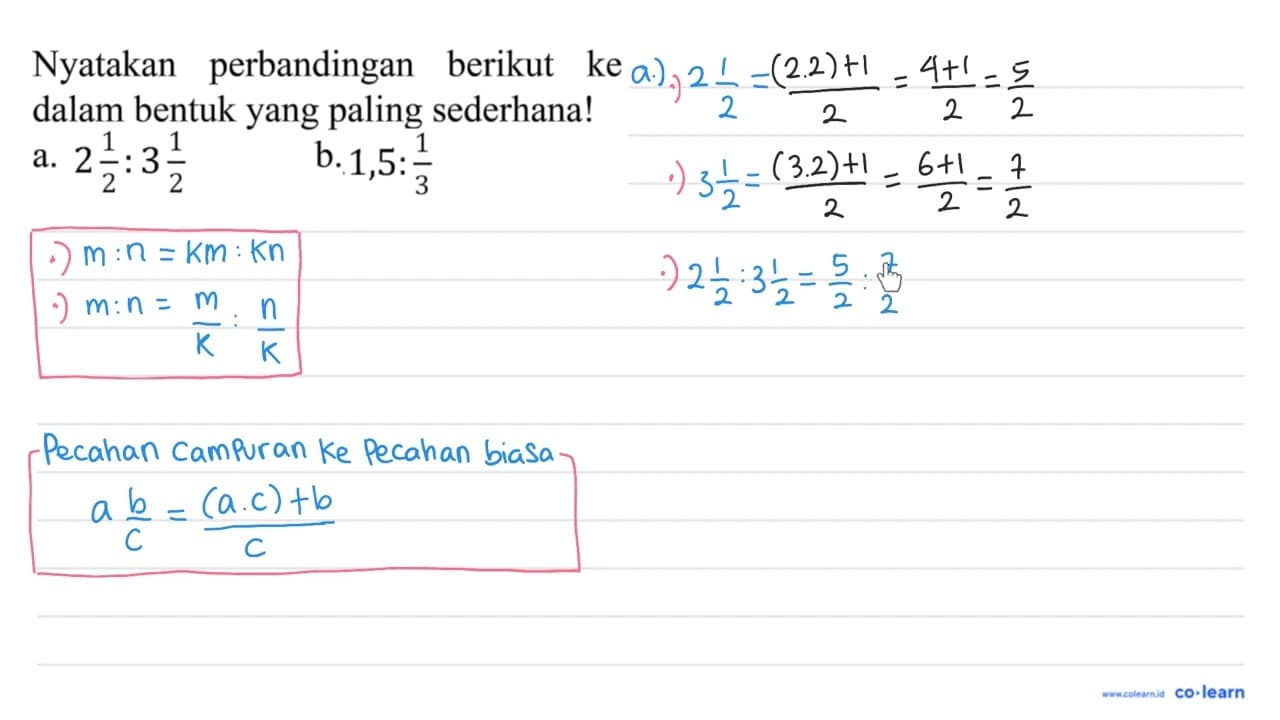 Nyatakan perbandingan berikut ke
dalam bentuk yang paling sederhana!
a. 2 1/2 : 3 1/2 b. 1,5 : 1/3
•) m : n = km : kn
•) m : n = m/k : n/k
Pecahan campuran ke pecahan biasa
a b/c = (a.c)+b/c
a.) •) 2 1/2 = (2.2)+1/2 = 4+1/2 = 5/2
•) 3 1/2 = (3.2)+1/2 = 6+1/2 = 7/2
•) 2 1/2 : 3 1/2 = 5/2 : 7/2
www.colearn.id co•learn